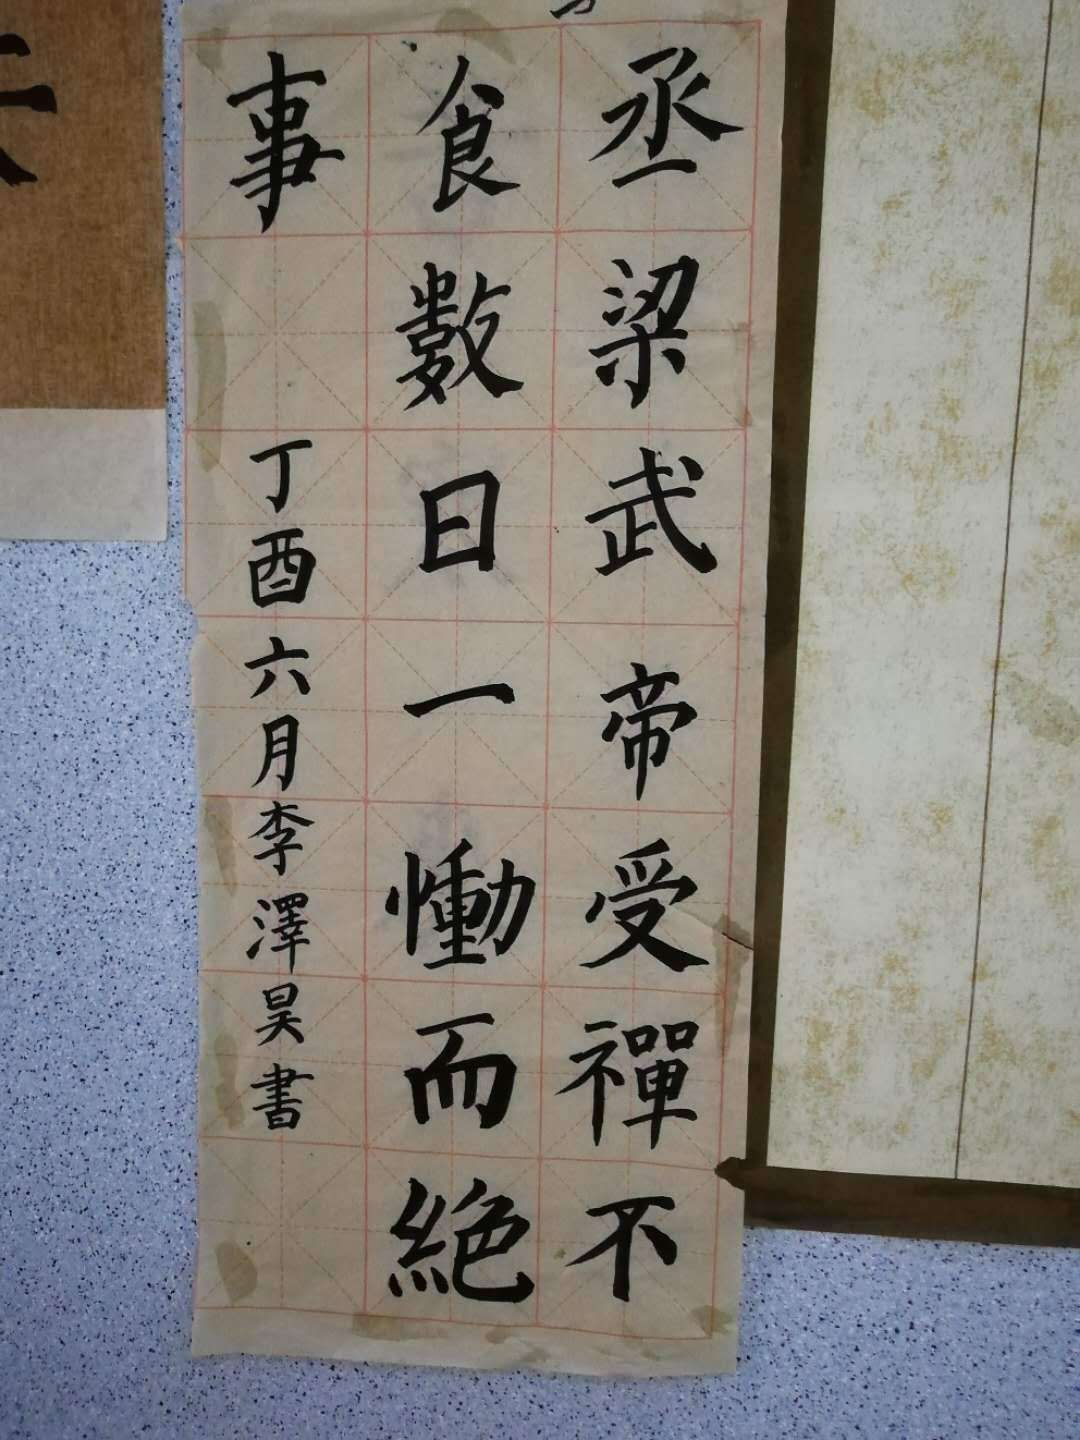 丞梁武帝受禪不
食數日一慟而絕
事
丁酉六月李澤昊書